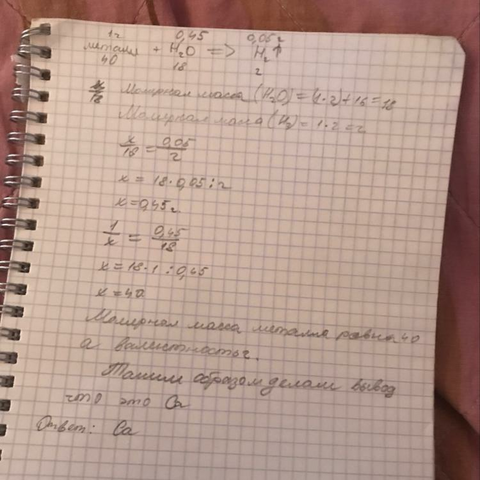 1г 0,45 0,05г
металл + H₂O => H₂↑
40 18 2
x/18 Молярная масса (H₂O) = (1·2)+16=18
Молярная масса (H₂) = 1·2=2
x/18 = 0,05/2
x = 18·0,05:2
x=0,45г
1/x = 0,45/18
x=18·1:0,45
x=40
Молярная масса металла равна 40
а валентность
Таким образом делаем вывод
что это Ca
Ответ: Ca